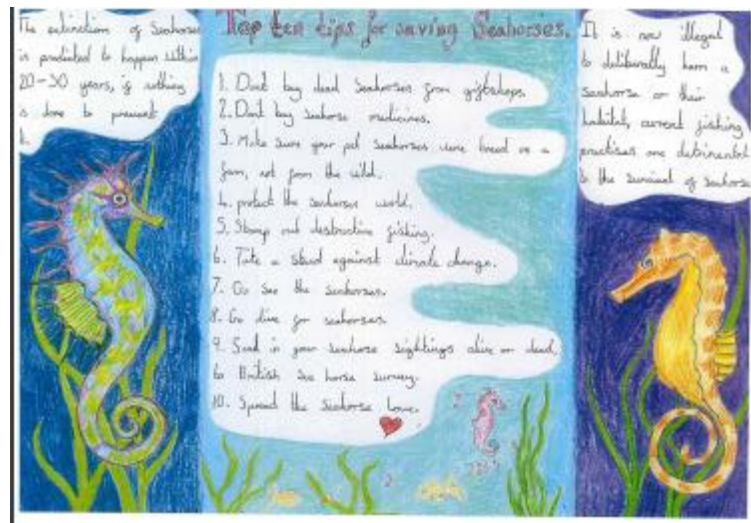 The extinction of Seahorses
is predicted to happen within
20-30 years, if nothing
is done to prevent
it.
Top ten tips for saving Seahorses.
1. Dont buy dead Seahorses from giftshops.
2. Dont buy seahorse medicines.
3. Make sure your pet seahorses were breed on a
farm, not from the wild.
4. protect the seahorses world.
5. Stamp out destructive fishing.
6. Take a stand against climate change.
7. Go see the seahorses.
8. Go dive for seahorses.
9. Send in your seahorse sightings alive or dead,
to British sea horse survey.
10. Spread the seahorse love.
It is now illegal
to deliberally harm a
seahorse or their
habitat, current fishing
practises are detrimental
to the survival of seahorses